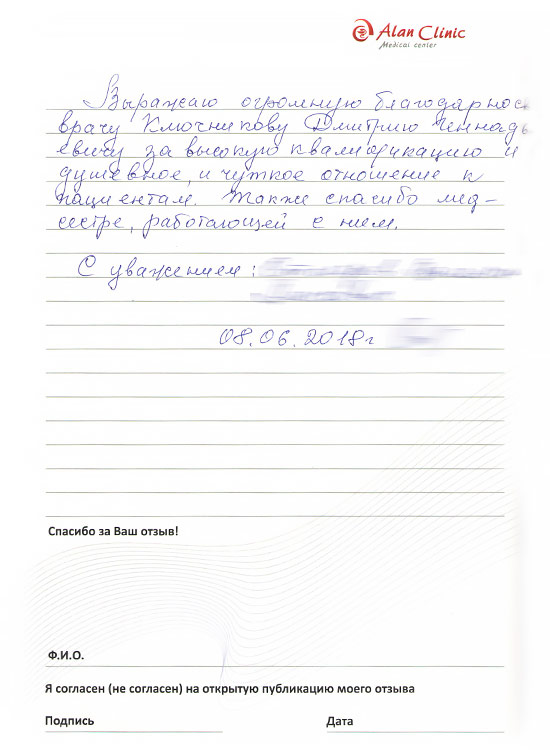 Alan Clinic
Medical center
Выражаю огромную благодарнос
врачу Ключникову Дмитрию Геннадь
евичу за высокую квалификацию и
душевное, и чуткое отношение к
пациентам. Также спасибо мед-
сестре, работающей с ним.
С уважением:
08.06.2018г
Спасибо за Ваш отзыв!
Ф.И.О.
Я согласен (не согласен) на открытую публикацию моего отзыва
Подпись Дата